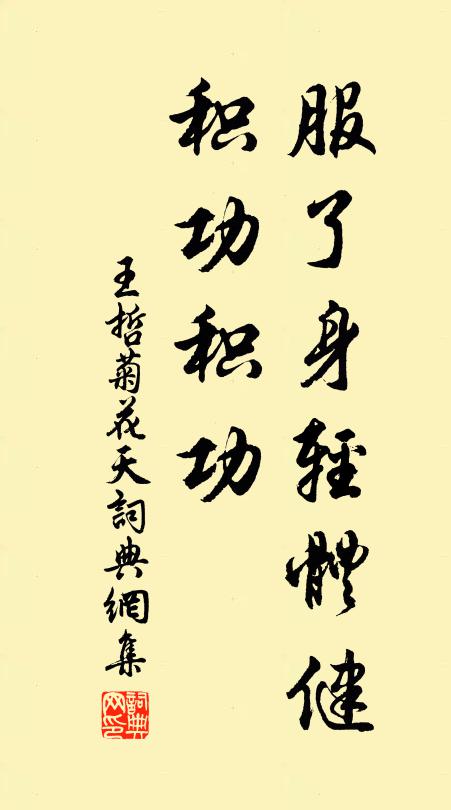 服了身輕體健
积功积功
王哲菊花天詞典網集
詞典网印